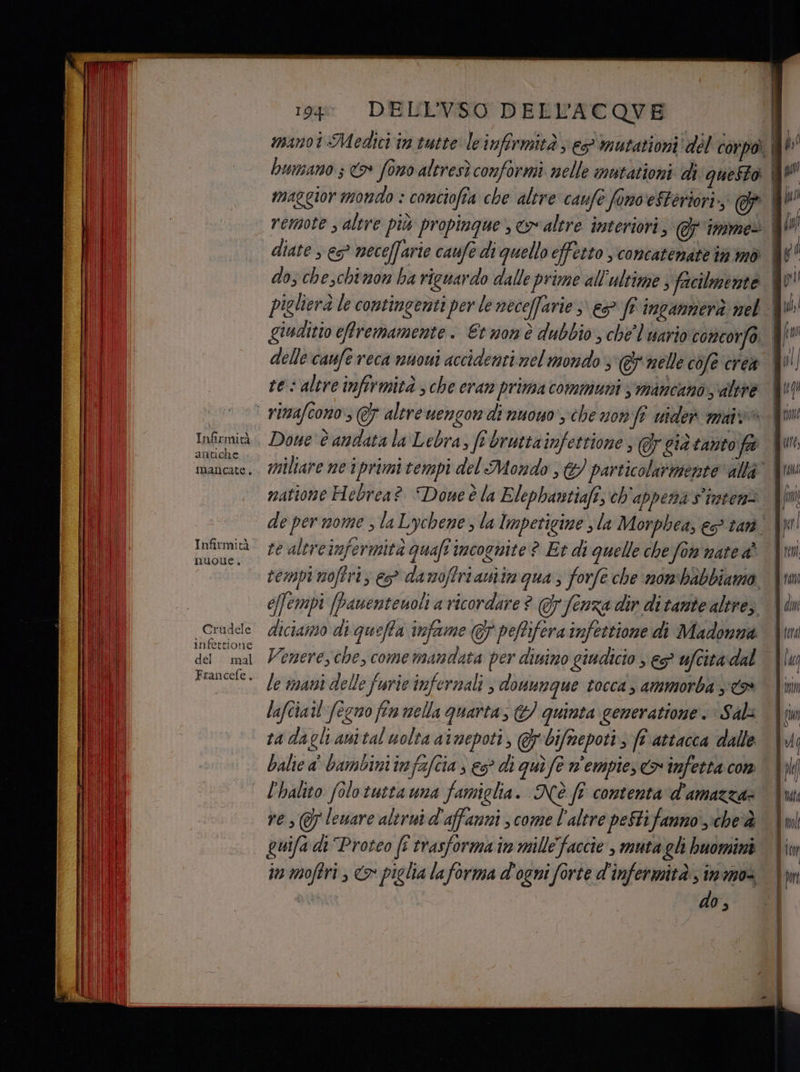 194 DELL'VSO DELL'ACQVE
mano i Medici in tutte le infirmità, & mutationi del corpo
humano; & sono altresì conformi nelle mutationi di questo
maggior mondo: conciosia che altre cause sono esteriori, &
remote, altre più propinque, & altre interiori, & imme=
diate, & necessarie cause di quello effetto, concatenate in mo
do, che, chi non ha riguardo dalle prime all'ultime, facilmente
piglierà le contingenti per le necessarie, & si ingannerà nel
giuditio estremamente. Et non è dubbio, che'l uario concorso
delle cause reca nuoui accidenti nel mondo, & nelle cose crea
te: altre infirmità, che eran prima communi, mancano, altre
rinascono, & altre uengon di nuouo, che non si uider mai.
Infirmità
antiche
mancate.
Doue è andata la Lebra, si brutta infettione, & già tanto fa
miliare ne i primi tempi del Mondo, & particolarmente alla
natione Hebrea? Doue è la Elephantiasi, ch'appena s'inten=
de per nome, la Lychene, la Impetigine, la Morphea, & tan
Infirmità
nuoue.
te altre infermità quasi incognite? Et di quelle che son nate a'
tempi nostri, & da nostri aui in qua, forse che non habbiamo
essempi spauenteuoli a ricordare? & senza dir di tante altre,
Crudele
infettione
del mal
Francese.
diciamo di questa infame & pestifera infettione di Madonna
Venere, che, come mandata per diuino giudicio, & uscita dal
le mani delle furie infernali, dounque tocca, ammorba, &
lascia il segno fin nella quarta, & quinta generatione. Sal=
ta dagli aui tal uolta ai nepoti, & bisnepoti, si attacca dalle
balie a' bambini in fascia, & di quì se n'empie, & infetta con
l'halito solo tutta una famiglia. Nè si contenta d'amazza=
re, & leuare altrui d'affanni, come l'altre pesti fanno, che à
guisa di Proteo si trasforma in mille faccie, muta gli huomini
in mostri, & piglia la forma d'ogni sorte d'infermità, in mo=
do,